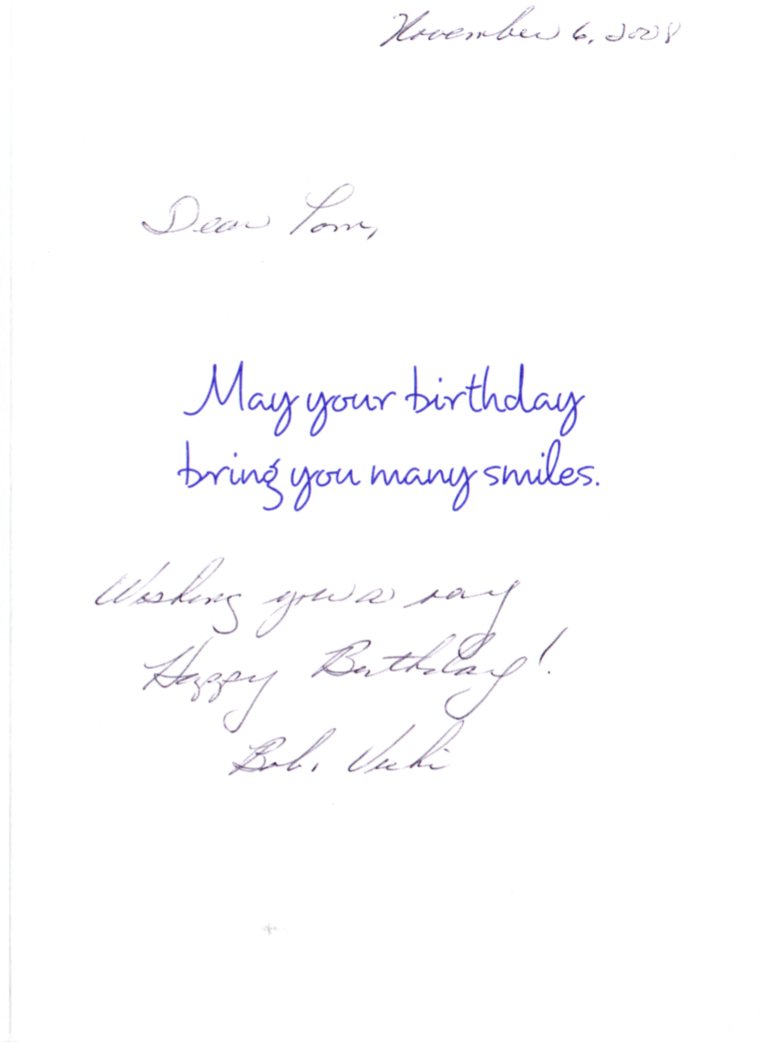 November 6, 2008
Dear Tom,
May your birthday
bring you many smiles.
Wishing you a very
Happy Birthday!
Bob, Vicki